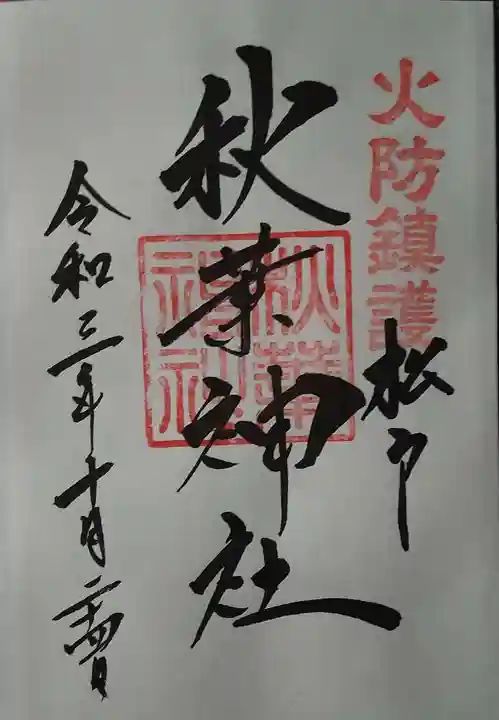 火防鎮護
松戸
秋葉神社
秋葉神社
令和三年十月二十四日